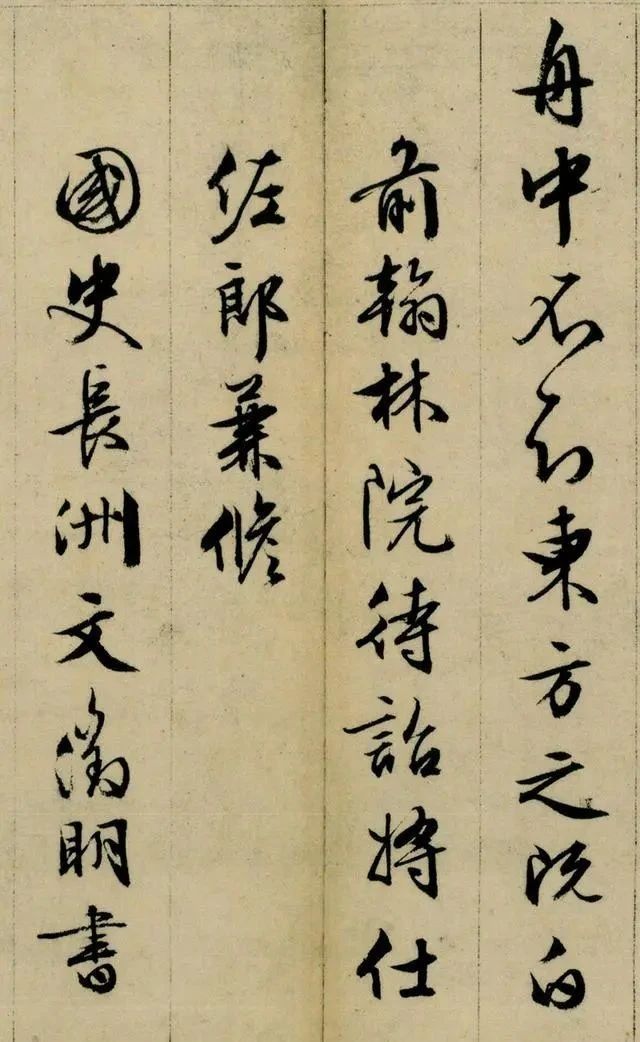 舟中不知東方之既白
前翰林院待詔將仕
佐郎兼修
國史長洲文徵明書